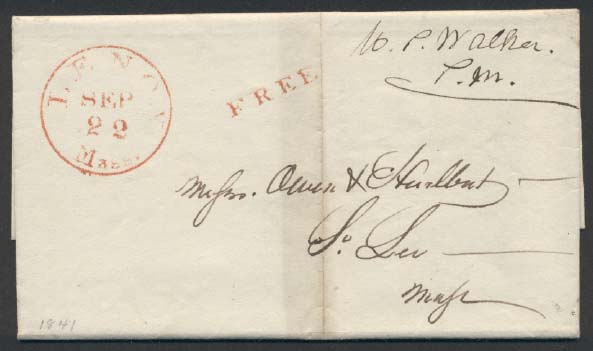 LENOX
SEP
22
Mass.
FREE
W. P. Walker.
P.M.
Messrs. Owen & Hurlbut
So. Lee
Mass
1841